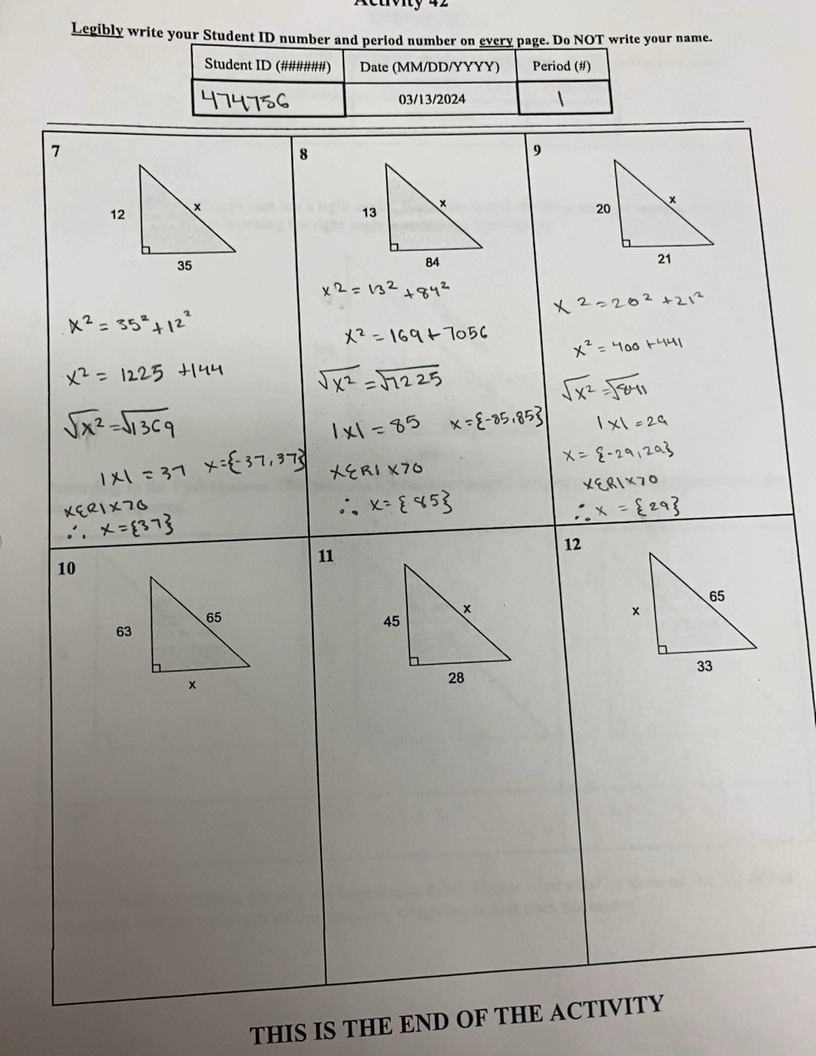 Activity 42
Legibly write your Student ID number and period number on every page. Do NOT write your name.
Student ID (######) Date (MM/DD/YYYY) Period (#)
474756 03/13/2024 1
7
12
x
35
x² = 35² + 12²
x² = 1225 + 144
√x² = √1369
|x| = 37 x = {-37, 37}
xεR|x>0
∴ x = {37}
8
13
x
84
x² = 13² + 84²
x² = 169 + 7056
√x² = √7225
|x| = 85 x = {-85, 85}
xεR|x>0
∴ x = {85}
9
20
x
21
x² = 20² + 21²
x² = 400 + 441
√x² = √841
|x| = 29
x = {-29, 29}
xεR|x>0
∴ x = {29}
10
63
65
x
11
45
x
28
12
x
65
33
THIS IS THE END OF THE ACTIVITY